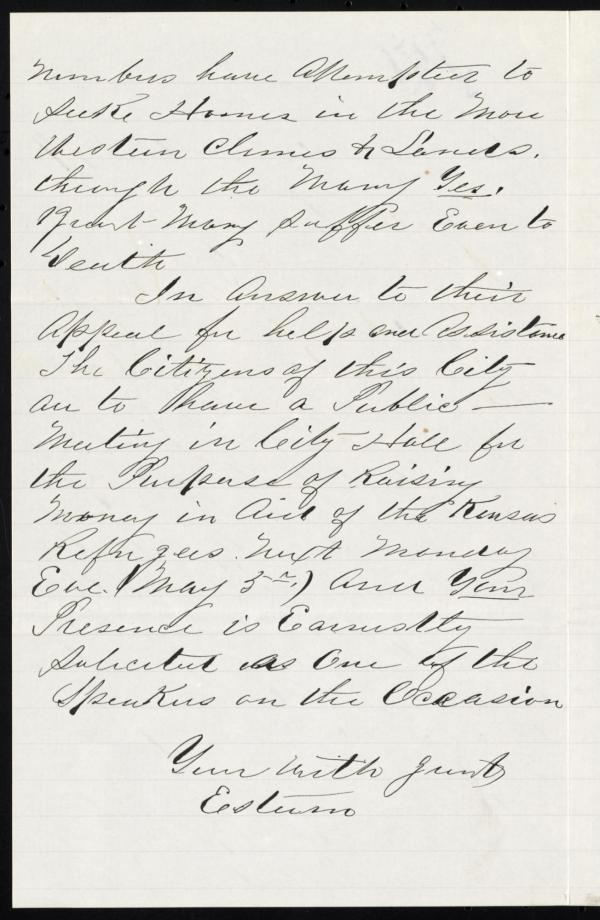 numbers have Attempted to
seeke Homes in the More
Western Climes & Lands.
through the Many Yes,
great Many suffer Even to
Death
In Answer to their
appeal for help and assistance
The Citizens of this City
are to have a Public
Meeting in City Hall for
the Purpose of Raising
Money in Aid of the Kansas
Refugees. Next Monday
Eve. (May 3rd) And Your
Presence is Earnestly
solicited as One of the
Speakers on the Occasion
Your With great
Esteem